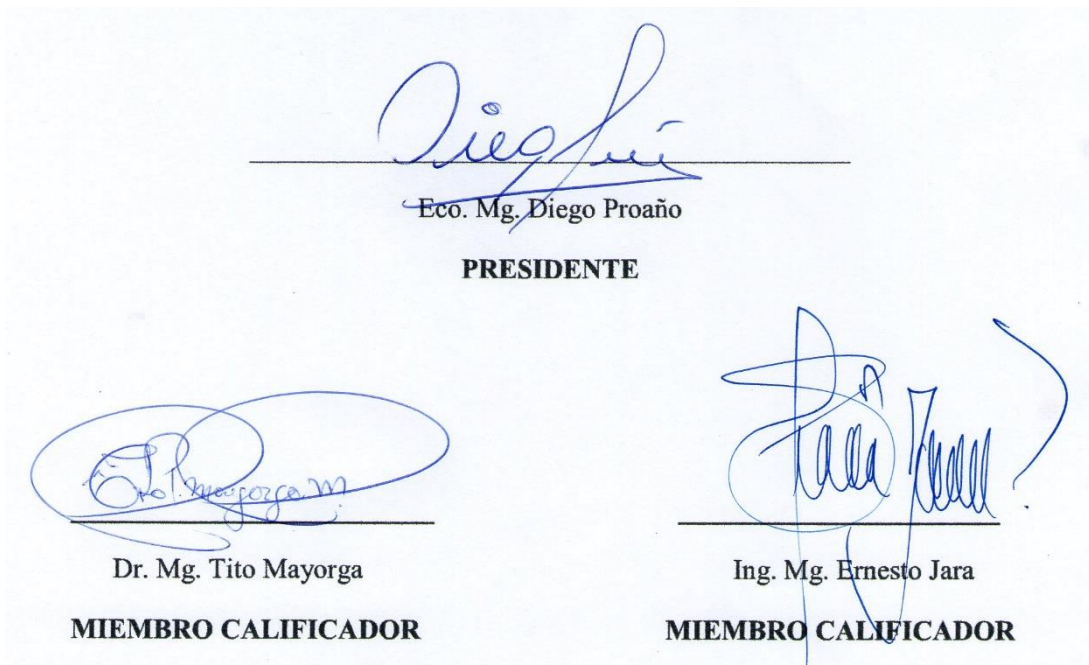 Eco. Mg. Diego Proaño
PRESIDENTE
Dr. Mg. Tito Mayorga
MIEMBRO CALIFICADOR
Ing. Mg. Ernesto Jara
MIEMBRO CALIFICADOR